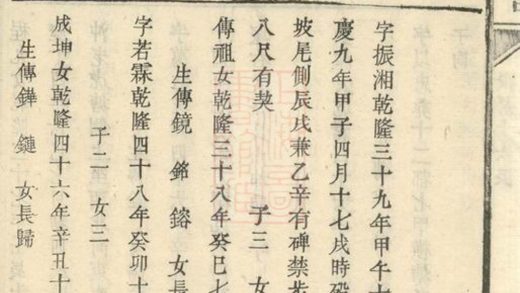 字振湘乾隆三十九年甲午十
慶九年甲子四月十七戌時歿
坡尾側辰戌兼乙辛有碑禁步
八尺有契 子三 女
傳祖女乾隆三十八年癸巳七
生傳鏡 銘 鎔 女長
字若霖乾隆四十八年癸卯十
子二 女三
成坤女乾隆四十六年辛丑十
生傳鏵 鏈 女長歸